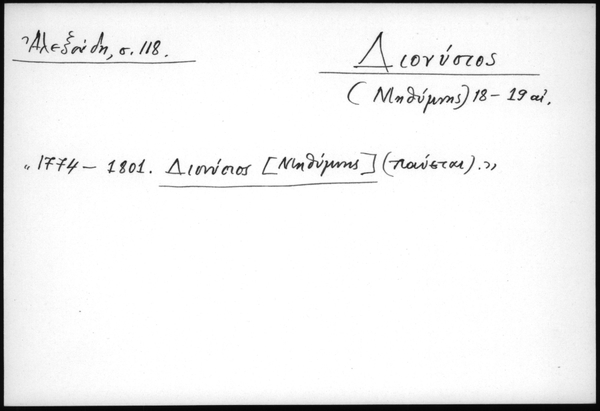 Ἀλεξούδη, σ. 118.
Διονύσιος
(Μηθύμνης) 18 – 19 αἰ.
„ 1774 – 1801. Διονύσιος [Μηθύμνης] (παύεται). „